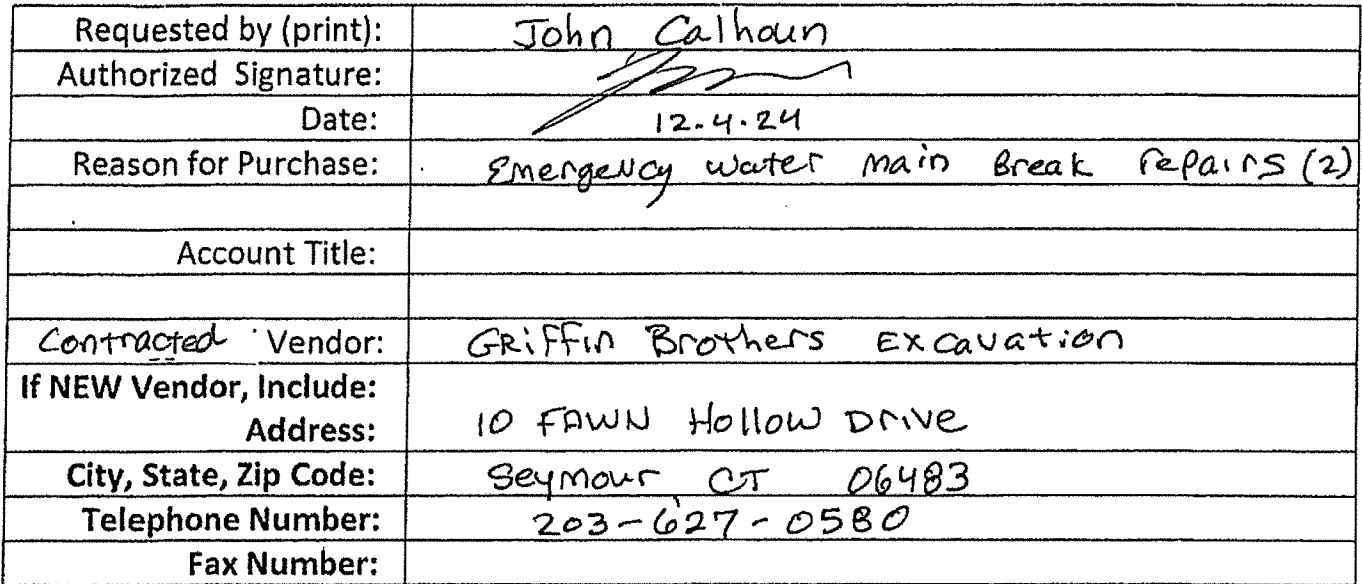 Requested by (print): John Calhoun
Authorized Signature:
Date: 12.4.24
Reason for Purchase: Emergency water main Break repairs (2)
Account Title:
Contracted Vendor: GRiffin Brothers Excavation
If NEW Vendor, Include:
Address: 10 FAWN Hollow Drive
City, State, Zip Code: Seymour CT 06483
Telephone Number: 203-627-0580
Fax Number: